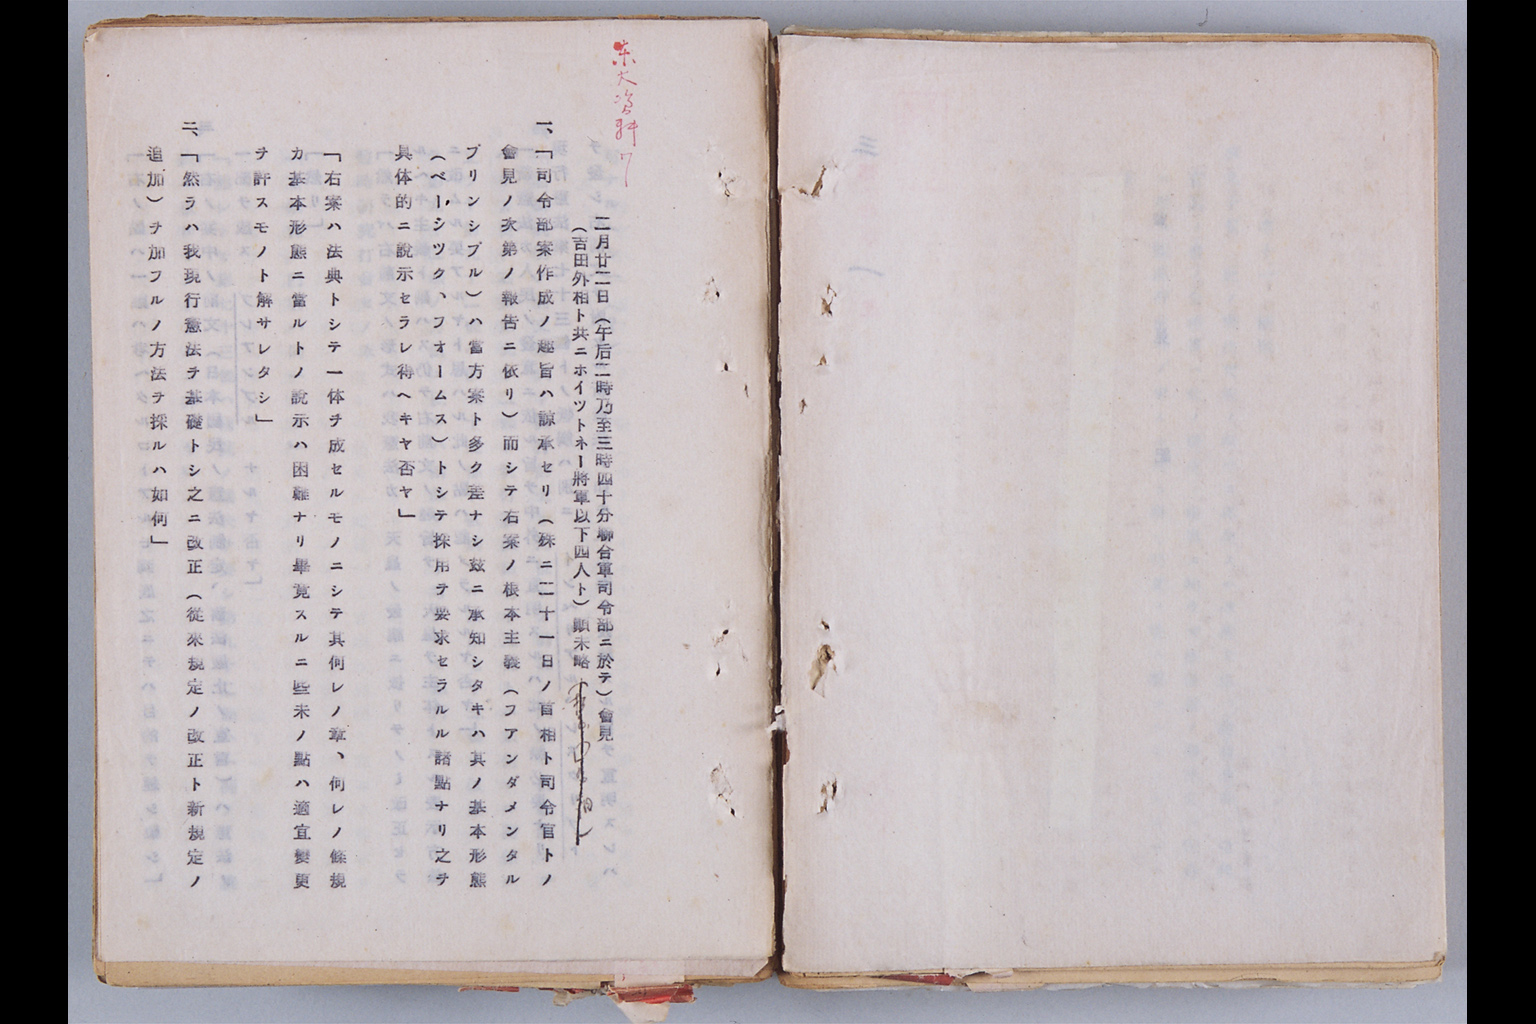 東大資料7
二月廿二日（午后二時乃至三時四十分聯合軍司令部ニ於テ）會見
（吉田外相ト共ニホイツトネー將軍以下四人ト）顚末略
一、「司令部案作成ノ趣旨ハ諒承セリ（殊ニ二十一日ノ首相ト司令官トノ
會見ノ次第ノ報告ニ依リ）而シテ右案ノ根本主義（フアンダメンタル
プリンシプル）ハ當方案ト多ク差ナシ茲ニ承知シタキハ其ノ基本形態
（ベーシツク、フオームス）トシテ採用ヲ要求セラルル諸點ナリ之ヲ
具体的ニ說示セラレ得ヘキヤ否ヤ」
「右案ハ法典トシテ一体ヲ成セルモノニシテ其何レノ章、何レノ條規
カ基本形態ニ當ルトノ說示ハ困難ナリ畢竟スルニ些末ノ點ハ適宜變更
ヲ許スモノト解サレタシ」
二、「然ラハ我現行憲法ヲ基礎トシ之ニ改正（從來規定ノ改正ト新規定ノ
追加）ヲ加フルノ方法ヲ採ルハ如何」